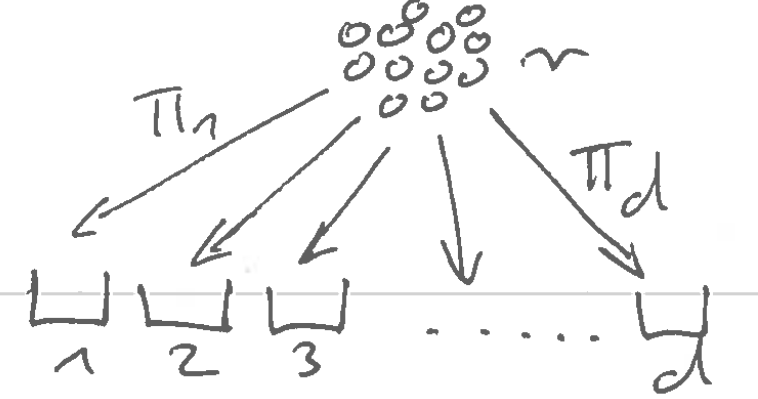 r
π₁
π_d
1 2 3 ...... d